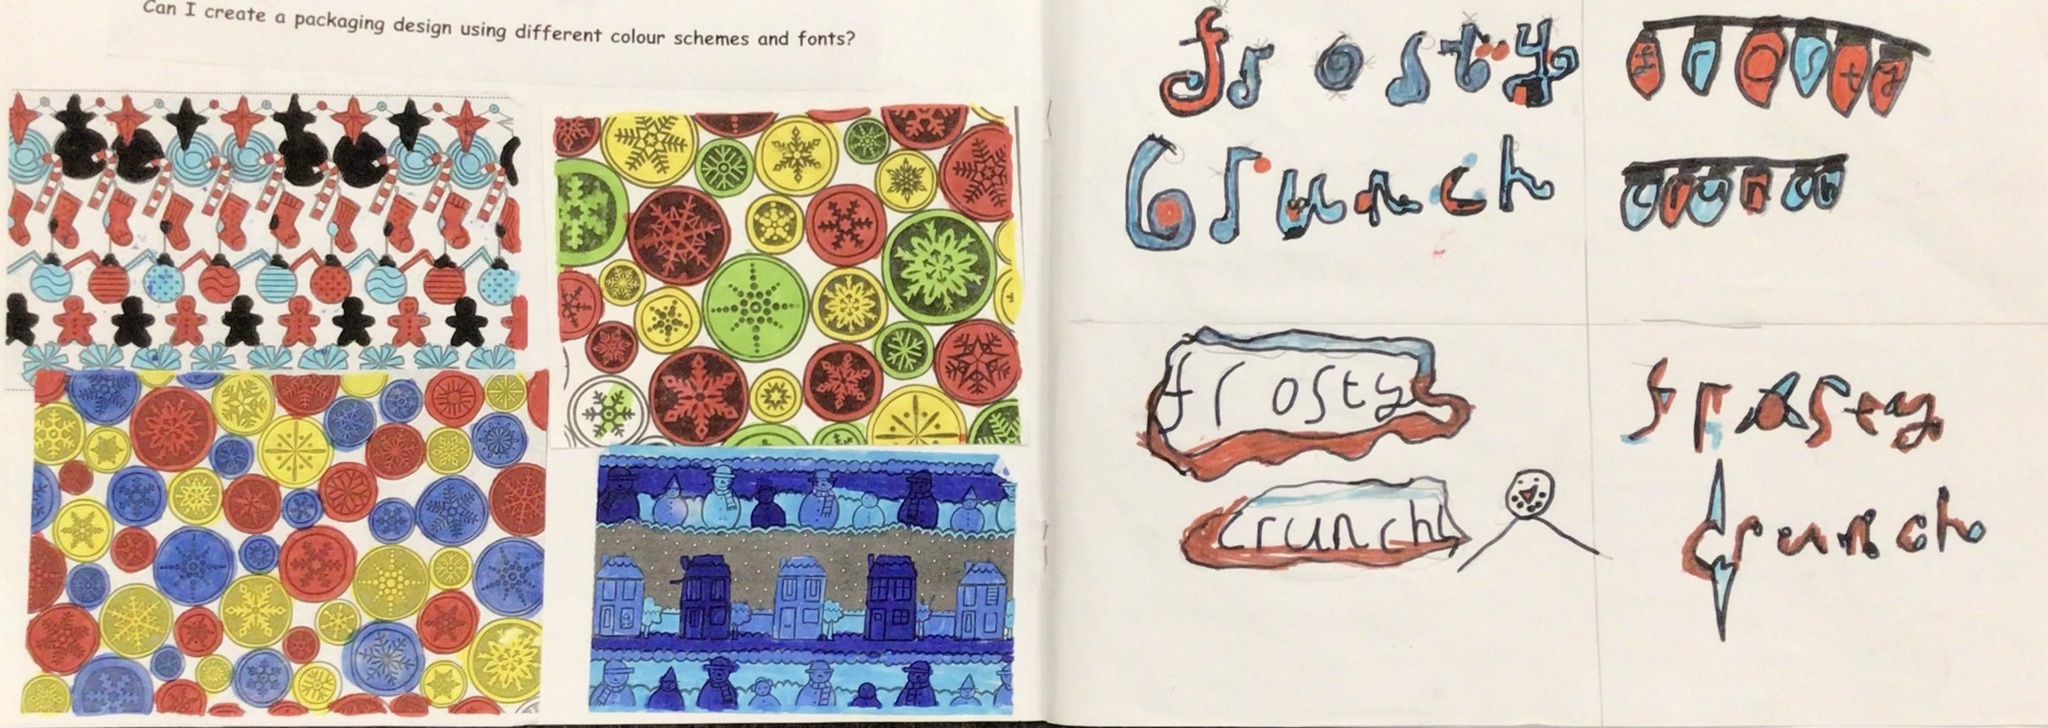 Can I create a packaging design using different colour schemes and fonts?
frosty
Crunch
frosty
crunch
frosty
crunch
frosty
crunch